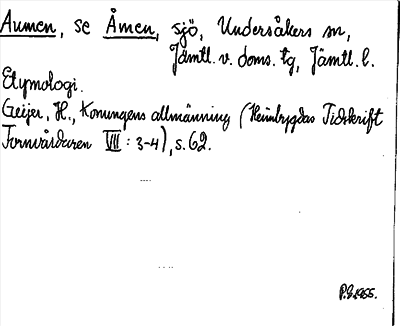 Aumen, se Åmen, sjö, Undersåkers sn,
Jämtl. v. doms. tg, Jämtl. l.
Etymologi.
Geijer, H., Konungens allmänning (Heimbygdas Tidskrift
Fornvårdaren VII: 3-4), s. 62.
P.G. 1955.